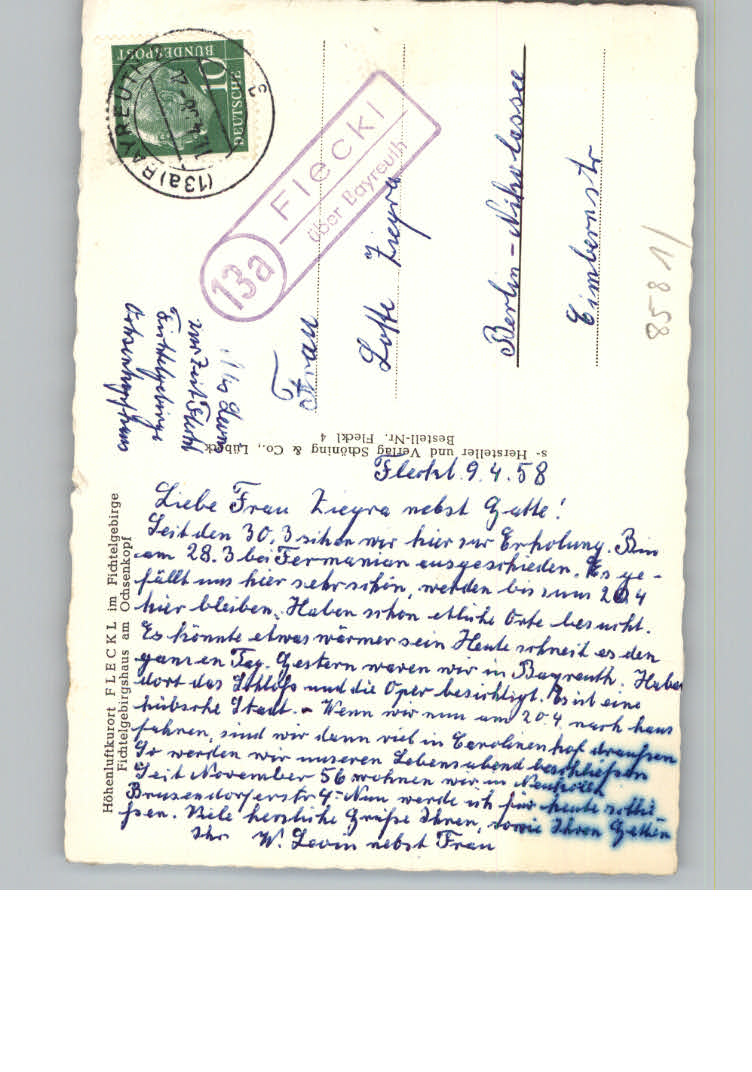 Höhenluftkurort FLECKL im Fichtelgebirge
Fichtelgebirgshaus am Ochsenkopf
Fleckl 9.4.58
Liebe Frau Ziegra nebst Gatte!
Seit den 30.3 sitzen wir hier zur Erholung. Bin
am 28.3 bei ausgeschieden. Es ge-
fällt uns hier sehr schön, werden bis zum 20.4
hier bleiben. Haben schon etliche Orte besucht.
Es könnte etwas wärmer sein Heute schneit es den
ganzen Tag. Gestern waren wir in Bayreuth. Haben
dort das Schloß und die Oper besichtigt. Es ist eine
hübsche Stadt. - Wenn wir nun am 20.4 nach haus
fahren, sind wir dann viel in Carolinenhof draußen
So werden wir unseren Lebensabend beschließen
Seit November 56 wohnen wir in Neukölln
Brusendorferstr 4.- Nun werde ich für heute schlie
ßen. Viele herzliche Grüße Ihnen, sowie Ihren Gatten
Ihr W. Levin nebst Frau
s- Hersteller und Verlag Schöning & Co., Lübeck
Bestell-Nr. Fleckl 4
zur Zeit Fleckl
Fichtelgebirge
Ochsenkopfhaus
DEUTSCHE
BUNDESPOST
10
(13a) BAYREUTH
13a
Fleckl
über Bayreuth
Frau
Lotte Ziegra
Berlin-Nikolassee
Eimbernstr
8581/